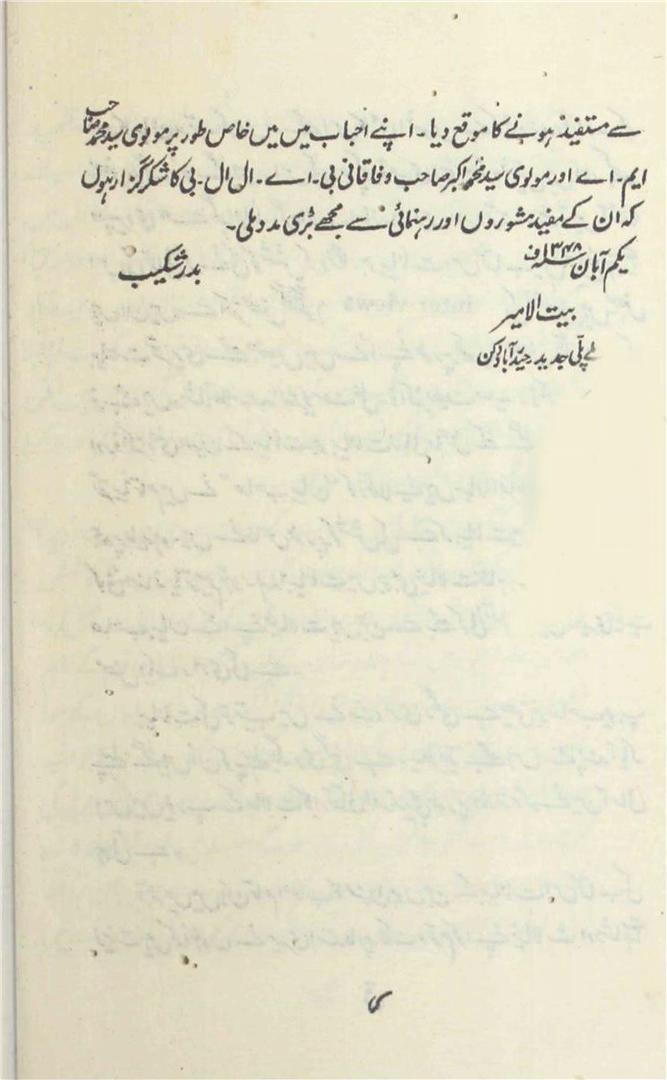 سے مستفید ہونے کا موقع دیا۔ اپنے احباب میں میں خاص طور پر مولوی سید محمد صاحب
ایم۔اے اور مولوی سید محمد اکبر صاحب وفاقانی بی۔اے۔ال ال۔بی کا شکر گزار ہوں
کہ ان کے مفید مشوروں اور رہنمائی سے مجھے بڑی مدد ملی۔
یکم آبان ۱۳۴۸ ف
بدر شکیب
بیت الامیر
نے پلی جدید حیدرآباد دکن
ی